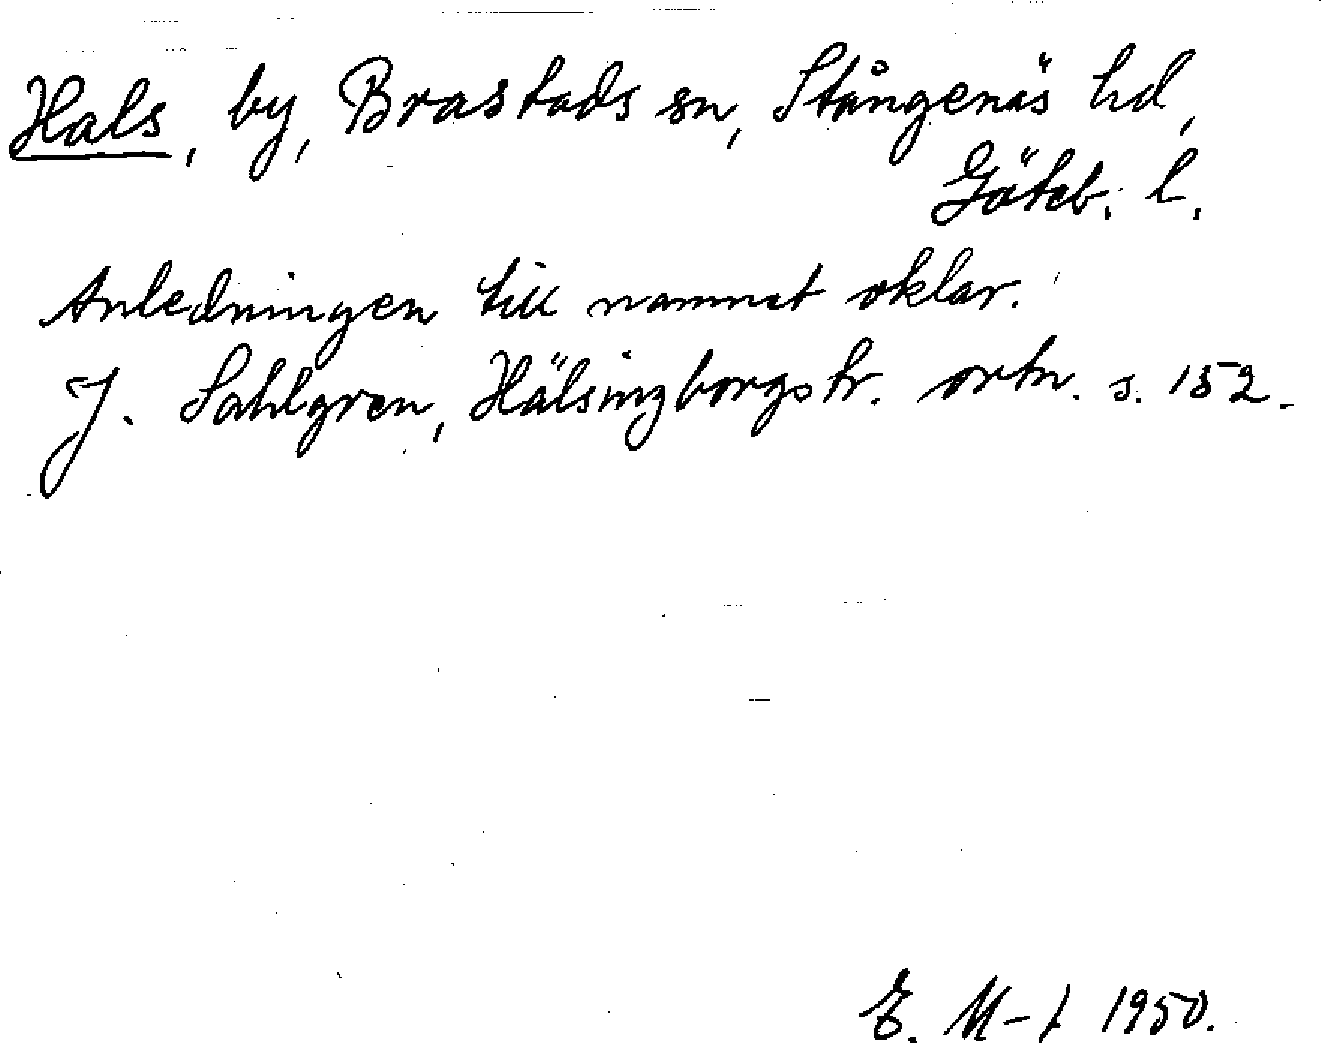 Hals, by, Brastads sn, Stångenäs hd,
Göteb. l.
Anledningen till namnet oklar.
J. Sahlgren, Hälsingborgstr. ortn. s. 152.
E. M-t 1950.